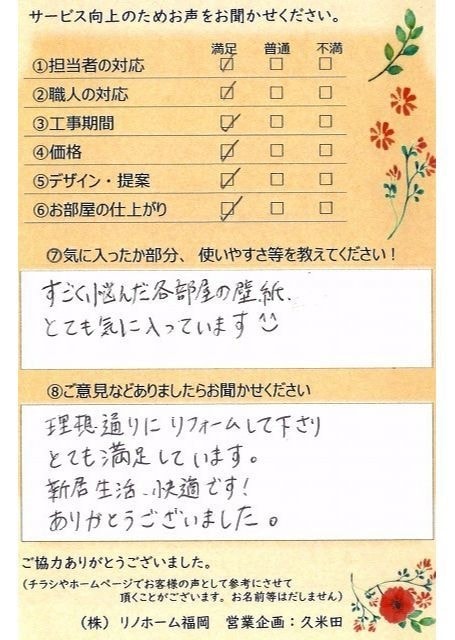 サービス向上のためお声をお聞かせください。
満足 普通 不満
①担当者の対応 ☑ ☐ ☐
②職人の対応 ☑ ☐ ☐
③工事期間 ☑ ☐ ☐
④価格 ☑ ☐ ☐
⑤デザイン・提案 ☑ ☐ ☐
⑥お部屋の仕上がり ☑ ☐ ☐
⑦気に入ったか部分、使いやすさ等を教えてください！
すごく悩んだ各部屋の壁紙、
とても気に入っています
⑧ご意見などありましたらお聞かせください
理想通りにリフォームして下さり
とても満足しています。
新居生活、快適です！
ありがとうございました。
ご協力ありがとうございました。
（チラシやホームページでお客様の声として参考にさせて
頂くことがございます。お名前等はだしません）
（株）リノホーム福岡 営業企画：久米田